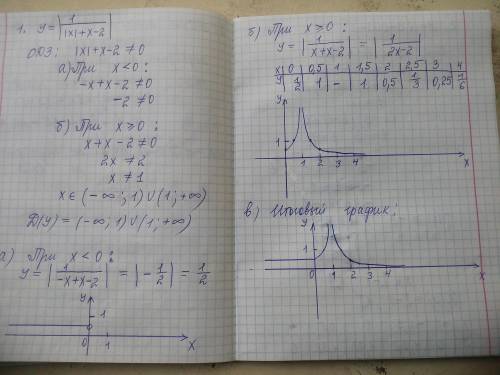 1. y = |1/(|x|+x-2)|
ОДЗ: |x|+x-2 ≠ 0
а) При x < 0:
-x+x-2 ≠ 0
-2 ≠ 0
б) При x ≥ 0:
x+x-2 ≠ 0
2x ≠ 2
x ≠ 1
x ∈ (-∞; 1) ∪ (1; +∞)
D(y) = (-∞; 1) ∪ (1; +∞)
а) При x < 0:
y = |1/(-x+x-2)| = |-1/2| = 1/2
y
1
0 1 x
б) При x ≥ 0:
y = |1/(x+x-2)| = |1/(2x-2)|
x 0 0,5 1 1,5 2 2,5 3 4
y 1/2 1 - 1 0,5 1/3 0,25 1/6
y
1
1 2 3 4 x
в) Итоговый график:
y
1
0 1 2 3 4 x